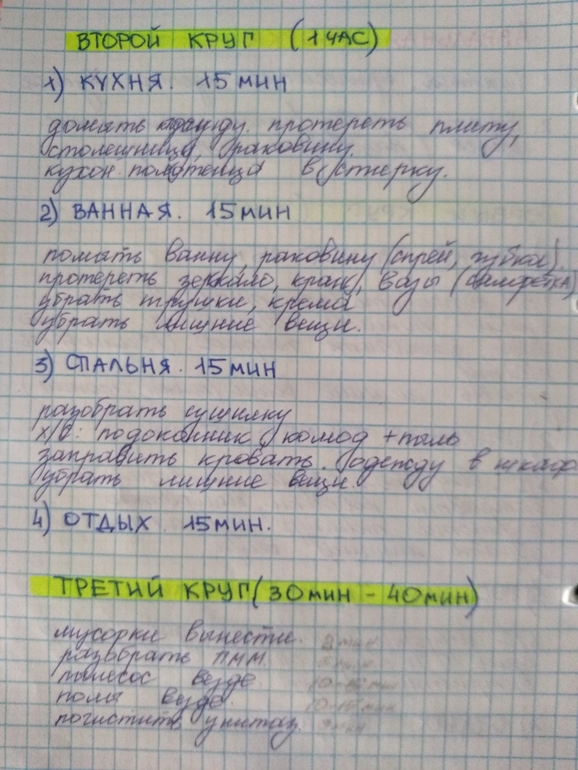 ВТОРОЙ КРУГ (1 ЧАС)
1) КУХНЯ. 15 МИН
домыть посуду. протереть плиту,
столешницу, раковину.
кухон. полотенца в стирку.
2) ВАННАЯ. 15 МИН
помыть ванну, раковину (спрей, губка).
протереть зеркало, кран, вазы (салфетка)
убрать игрушки, крема
убрать лишние вещи.
3) СПАЛЬНЯ. 15 МИН
разобрать сушилку
х/б: подоконник, комод + пыль
заправить кровать. одежду в шкаф
убрать лишние вещи.
4) ОТДЫХ. 15 МИН.
ТРЕТИЙ КРУГ (30 МИН - 40 МИН)
мусорки вынести.
разобрать ПММ.
пылесос везде 10-15 мин
полы везде. 10-15 мин
почистить унитаз.